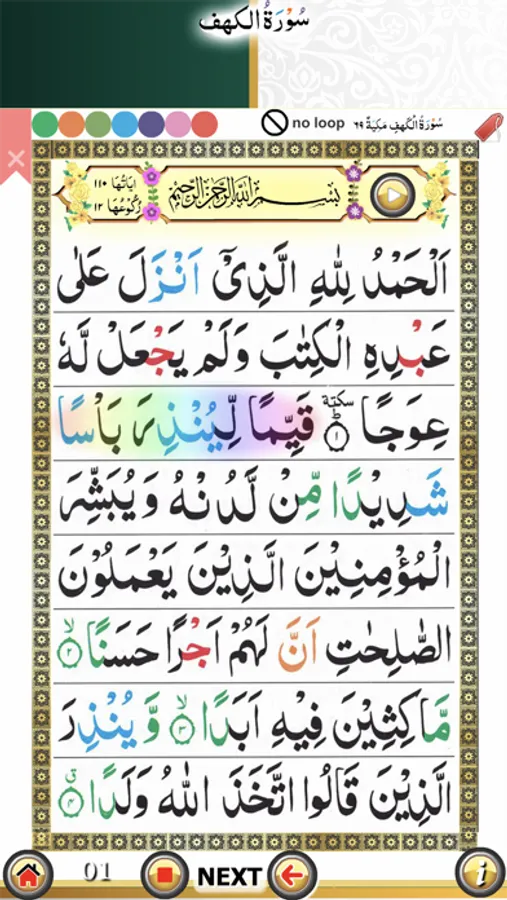 سُوْرَةُ الكهف
no loop سُوْرَةُ الْكَهْفِ مَكِيَّةٌ ٦٩
اٰيَاتُهَا ١١٠
رُكُوْعُهَا ١٢
بِسْمِ اللّٰهِ الرَّحْمٰنِ الرَّحِيْمِ
اَلْحَمْدُ لِلّٰهِ الَّذِيْۤ اَنْزَلَ عَلٰى
عَبْدِهِ الْكِتٰبَ وَلَمْ يَجْعَلْ لَّهٗ
عِوَجًا ١ؕ سكتة قَيِّمًا لِّيُنْذِرَ بَاْسًا
شَدِيْدًا مِّنْ لَّدُنْهُ وَيُبَشِّرَ
الْمُؤْمِنِيْنَ الَّذِيْنَ يَعْمَلُوْنَ
الصّٰلِحٰتِ اَنَّ لَهُمْ اَجْرًا حَسَنًا ۙ٢
مَّاكِثِيْنَ فِيْهِ اَبَدًا ۙ٣ وَّيُنْذِرَ
الَّذِيْنَ قَالُوا اتَّخَذَ اللّٰهُ وَلَدًا ۗ٤
01 NEXT i